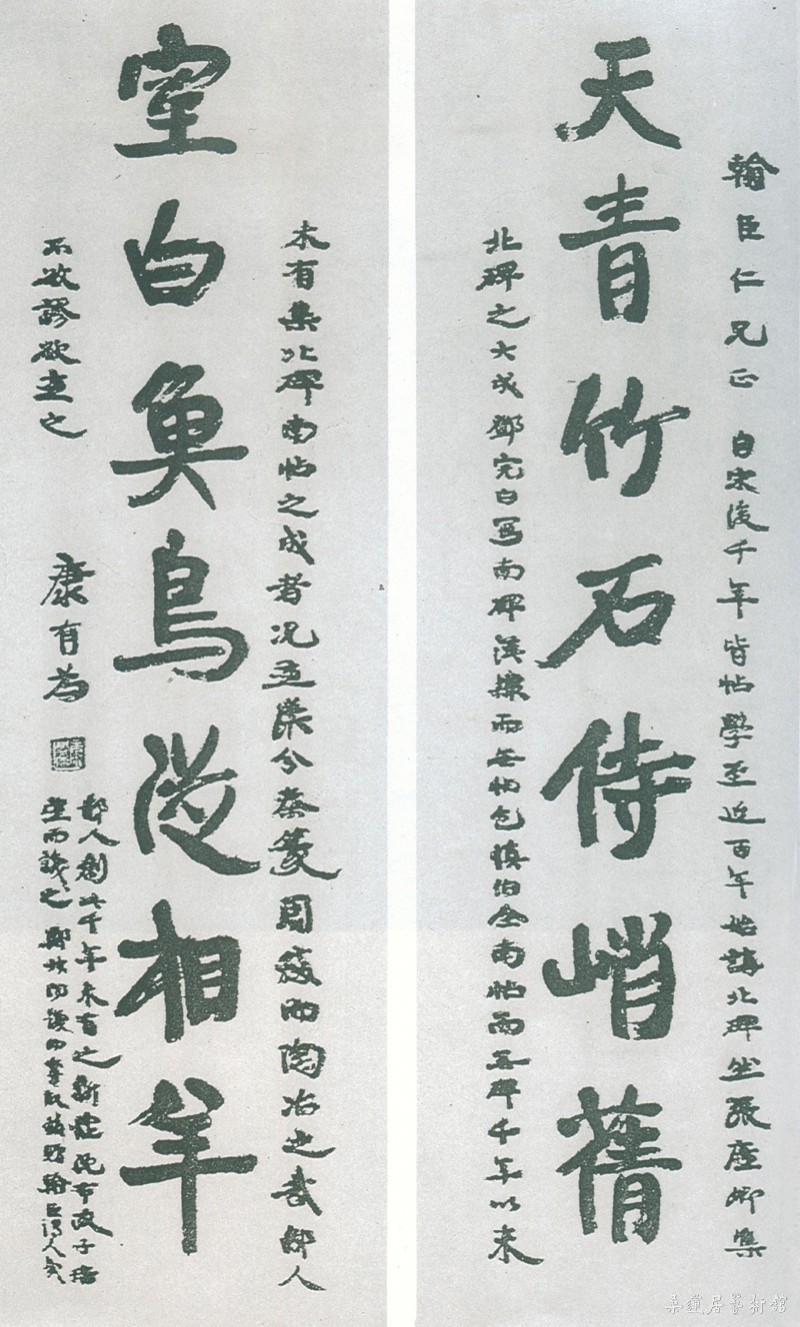 翰臣仁兄正 自宋後千年皆帖學至近百年始講北碑然張廉卿集
天青竹石侍峭蒨
北碑之大成鄧完白寫南碑漢隸而無帖包慎伯全南帖而無碑千年以來
未有集北碑南帖之成者況兼漢分秦篆周籀而陶冶之哉鄙人
室白魚鳥從相羊
不敏謬欲兼之
康有為
鄙人創此千年未有之新體沈布政子培
望而識之鄭叔問 翰臣得人哉
桑蓮居藝術館